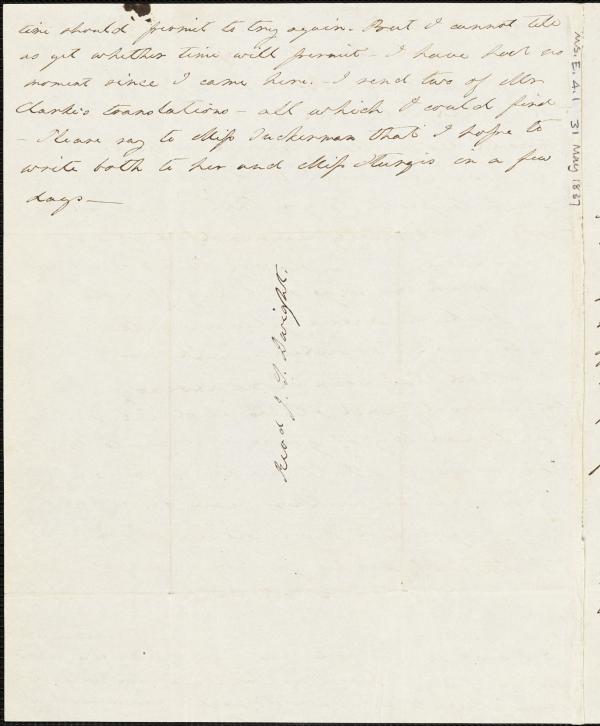 time should permit to try again. But I cannot tell
as yet whether time will permit - I have had no
moment since I came here. - I send two of Mr
Clarke's translations - all which I could find
- Please say to Miss Tuckerman that I hope to
write both to her and Miss Sturgis in a few
days —
J. S. Dwight.
Ms. E. 4. 1 31 May 1837